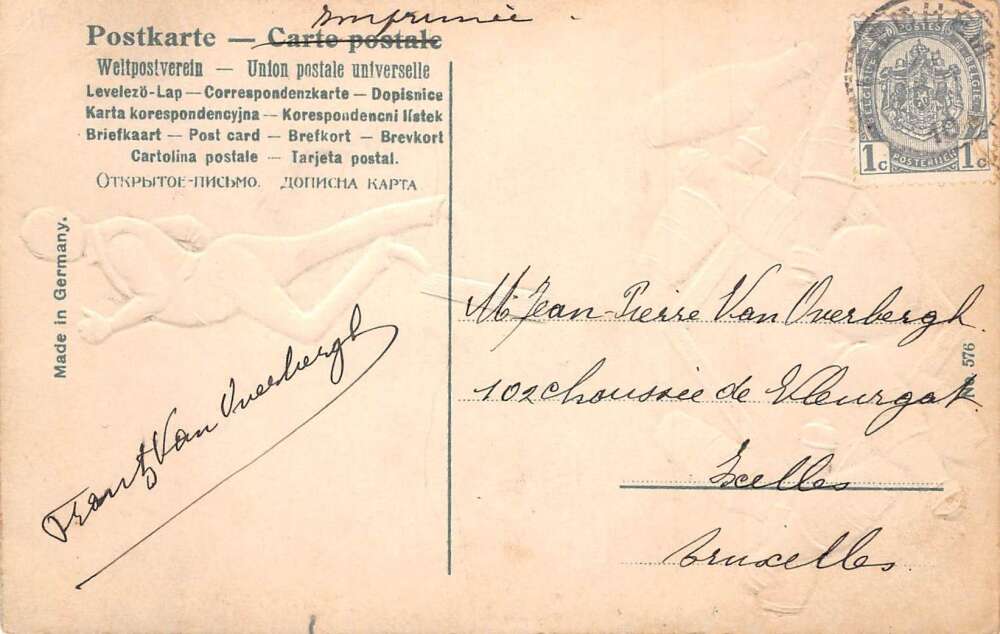 Imprimée
Postkarte — Carte postale
Weltpostverein — Union postale universelle
Levelező-Lap — Correspondenzkarte — Dopisnice
Karta korespondencyjna — Korespondencni lístek
Briefkaart — Post card — Brefkort — Brevkort
Cartolina postale — Tarjeta postal.
Открытое-письмо. Дописна карта
Made in Germany.
Frantz Van Overbergh
POSTES
BELGIQUE
1c POSTERIJEN 1c
Mr Jean-Pierre Van Overbergh
102 chaussée de Vleurgat
No. 576
Ixelles
Bruxelles.